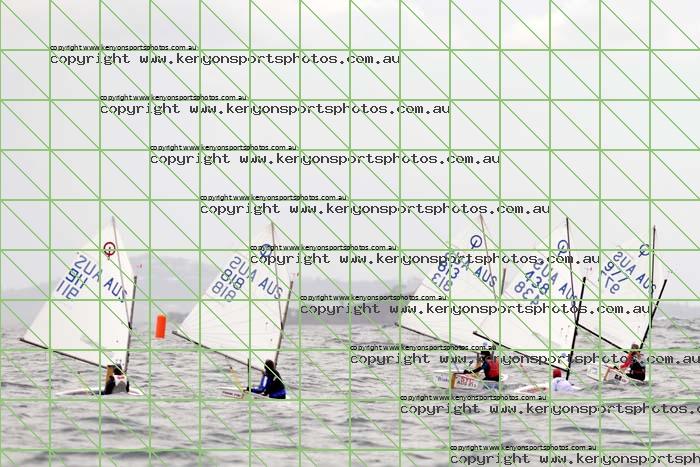 copyright www.kenyonsportsphotos.com.au
copyright www.kenyonsportsphotos.com.au
copyright www.kenyonsportsphotos.com.au
copyright www.kenyonsportsphotos.com.au
copyright www.kenyonsportsphotos.com.au
copyright www.kenyonsportsphotos.com.au
copyright www.kenyonsportsphotos.com.au
copyright www.kenyonsportsphotos.com.au
copyright www.kenyonsportsphotos.com.au
copyright www.kenyonsportsphotos.com.au
AUS
AUS
818
AUS
813
AUS
438
AUS
copyright www.kenyonsportsphotos.com.au
copyright www.kenyonsportsphotos.com.au
copyright www.kenyonsportsphotos.com.au
copyright www.kenyonsportsphotos.com.au
copyright www.kenyonsportsphotos.com.au
copyright www.kenyonsportsphotos.com.au
copyright www.kenyonsportsphotos.com.au
copyright www.kenyonsportsph